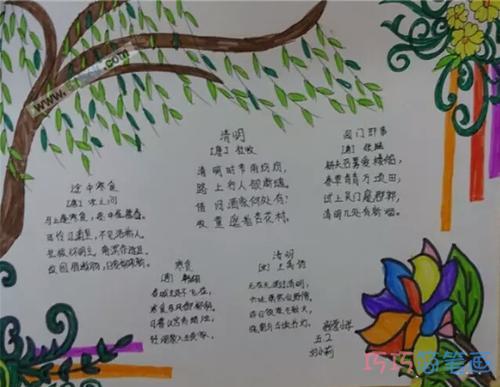 清明
[唐] 杜牧
清明时节雨纷纷,
路上行人欲断魂。
借问酒家何处有?
牧童遥指杏花村。
闾门即事
[唐] 张继
耕夫召募爱楼船,
春草青青万顷田;
试上吴门窥郡郭,
清明几处有新烟。
途中寒食
[唐] 宋之问
马上逢寒食,途中属暮春。
可怜江浦望,不见洛桥人。
北极怀明主,南溟作逐臣。
故园肠断处,日夜柳条新。
寒食
[唐] 韩翃
春城无处不飞花,
寒食东风御柳斜。
日暮汉宫传蜡烛,
轻烟散入五侯家。
清明
[宋] 王禹偁
无花无酒过清明,
兴味萧然似野僧。
昨日邻家乞新火,
晓窗分与读书灯。
小学
五.2
小莉
巧巧简笔画